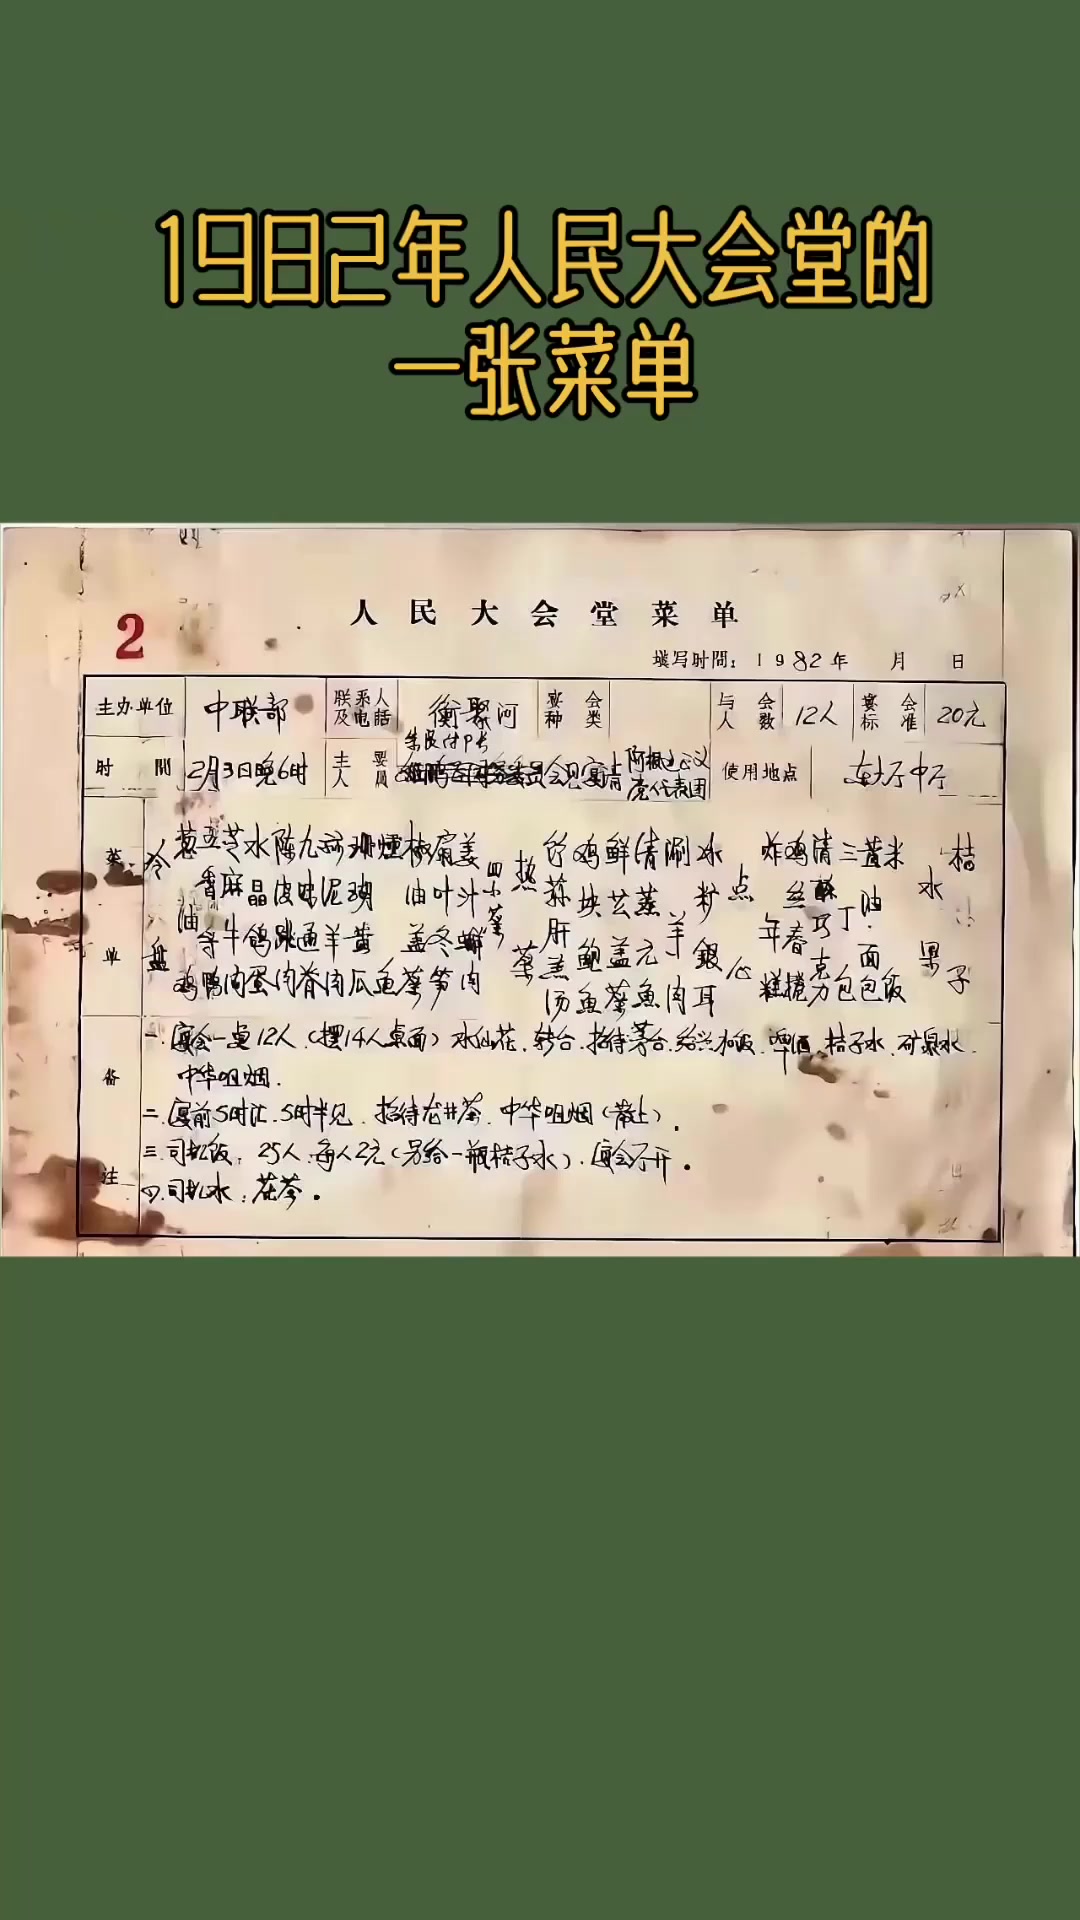 1982年人民大会堂的
一张菜单
2
人民大会堂菜单
填写时間：1982年 月 日
主办单位 中联部 联系人及电話 衡聚河 宴会种类 与会人数 12人 宴会标准 20元
时間 2月3日晚6时 主要人員 会见宴请 阿根廷正义党代表团 使用地点 东大厅中厅
菜单
冷盘
葱油鸡
五香鸭
芝麻牛肉
水晶鸽蛋
陈皮肉
九味通脊
羊肉
珊瑚黄瓜
燻鱼
椒油盖菜
扁叶冬笋
姜汁螃肉
四小菜
热菜
竹荪肝羔汤
鸡块鲍鱼
鲜芸盖菜
清蒸元魚
涮羊肉
冰籽銀耳
点心
炸年糕
鸡丝春捲
清酥巧克力
三丁包
黄油面包
米饭
水果
桔子
备注
一.宴会一桌12人.(摆14人桌面)水仙花.转台.招待茅台.绍兴.啤酒.桔子水.矿泉水.
中华咀烟.
二.宴前5时汇.5时半见.招待龙井茶.中华咀烟(散上).
三.司机饭：25人.每人2元(另给一瓶桔子水).宴会厅开.
四.司机水：花茶.